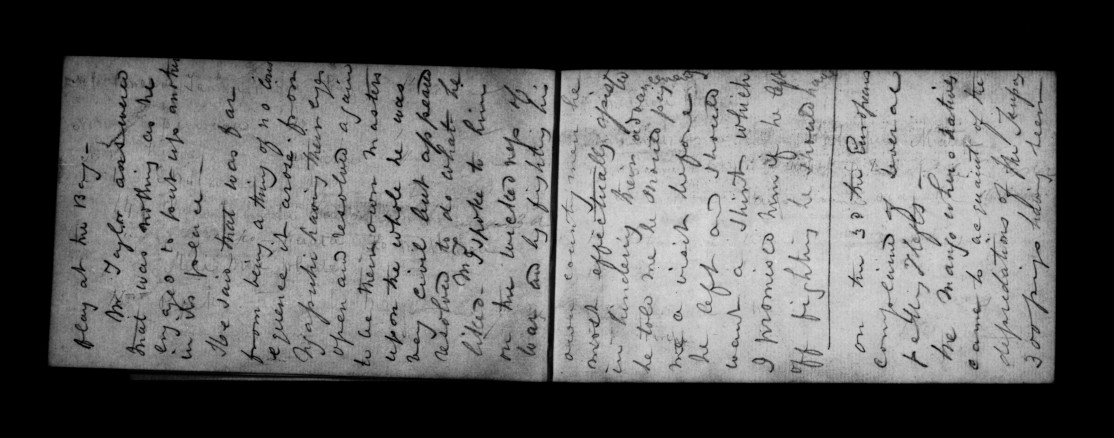 play at the Bay –
Mr Taylor answered
that was nothing as he
in its place –
He said that was far
from being a thing of no cons
equence it arose from
Ngapuhi having their eyes
open and resolved again
to be their own masters
upon the whole he was
very civil but appeared
resolved to do what he
liked – I spoke to him
on the wickedness of
war and by fighting his
own countrymen he
most effectually assisted
in hindering their advan
he told me he should pay
me a visit before
he left and should
want a shirt which
I promised him if he left
off fighting he should have
on the 3d the Europeans
complained of several
petty thefts –
the Mango chiefs natives
came to acquaint of the
depredations of the
300 pigs having been